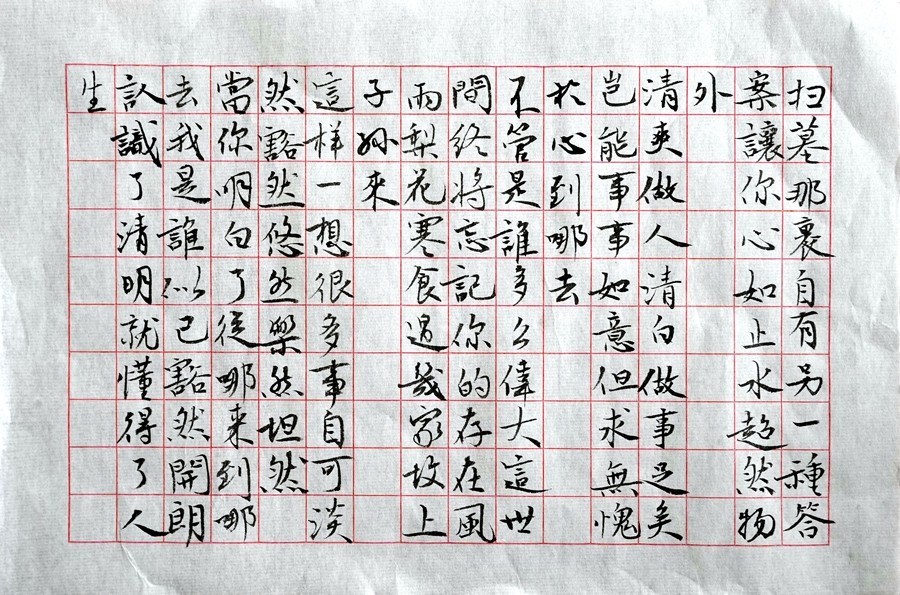 扫墓那裏自有另一種答
案讓你心如止水超然物
外
清爽做人清白做事足矣
岂能事事如意但求無愧
於心到哪去
不管是誰多么偉大這世
間终將忘記你的存在風
雨梨花寒食過幾家坟上
子孙來
這样一想很多事自可淡
然豁然悠然樂然坦然
當你明白了從哪来到哪
去我是誰似已豁然開朗
認識了清明就懂得了人
生